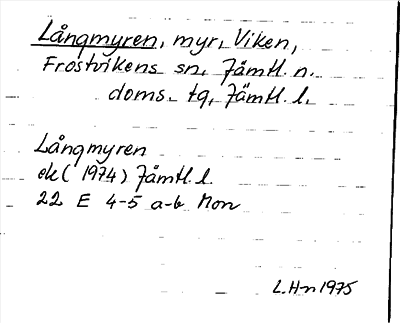 Långmyren, myr, Viken,
Frostvikens sn, Jämtl. n.
doms. tg, Jämtl. l.
Långmyren
ek (1974) Jämtl. l.
22 E 4-5 a-b Mon
L.H-n 1975